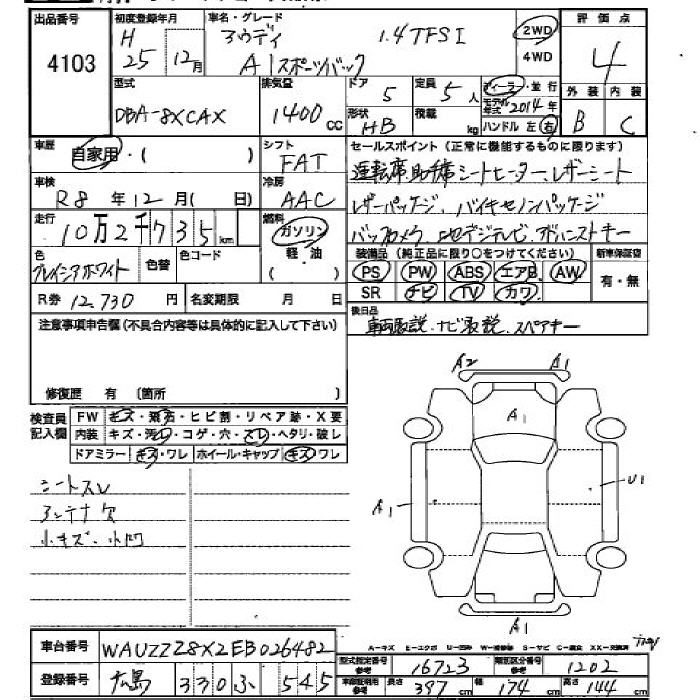 出品番号 4103
初度登録年月 H 25 年 12月
車名・グレード アウディ 1.4TFSI
A1スポーツバック
2WD
4WD
評価点 4
外装 B
内装 C
型式 DBA-8XCAX
排気量 1400 cc
ドア 5
定員 5人
形状 HB
積載 kg
ディーラー・並行
モデル年式 2014年
ハンドル 左 右
車歴 自家用・( )
シフト FAT
車検 R8年12月( 日)
冷房 AAC
走行 10万2千735km
燃料 ガソリン
軽・油
色 グレイシアホワイト
色替
色コード
R券 12,730 円
名変期限 月 日
セールスポイント(正常に機能するものに限ります)
運転席助手席シートヒーター、レザーシート
レザーパッケージ、バイキセノンパッケージ
バックカメラ、地デジテレビ、アドバンストキー
装備品(純正品に限り○をつけてください)
新車保証書
PS PW ABS エアB AW
SR ナビ TV カワ
有・無
後日品
車両取説、ナビ取説、スペアキー
注意事項申告欄(不具合内容等は具体的に記入して下さい)
修復歴 有 〔箇所 〕
検査員記入欄
FW キズ・飛石・ヒビ割・リペア跡・X要
内装 キズ・汚レ・コゲ・穴・スレ・ヘタリ・破レ
ドアミラー キズ・ワレ
ホイール・キャップ キズ・ワレ
シートスレ
アンテナ欠
小キズ・小凹
A2 A1
A1
A1
U1
A1
A-キズ E-エクボ U-凹み W-補修跡 S-サビ C-腐食 XX-交換済
車台番号 WAUZZZ8X2EB026482
登録番号 広島 330 ふ 545
型式指定番号 参考 16723
類別区分番号 参考 1202
車検証明用 参考 長さ 397 cm 幅 174 cm 高さ 144 cm